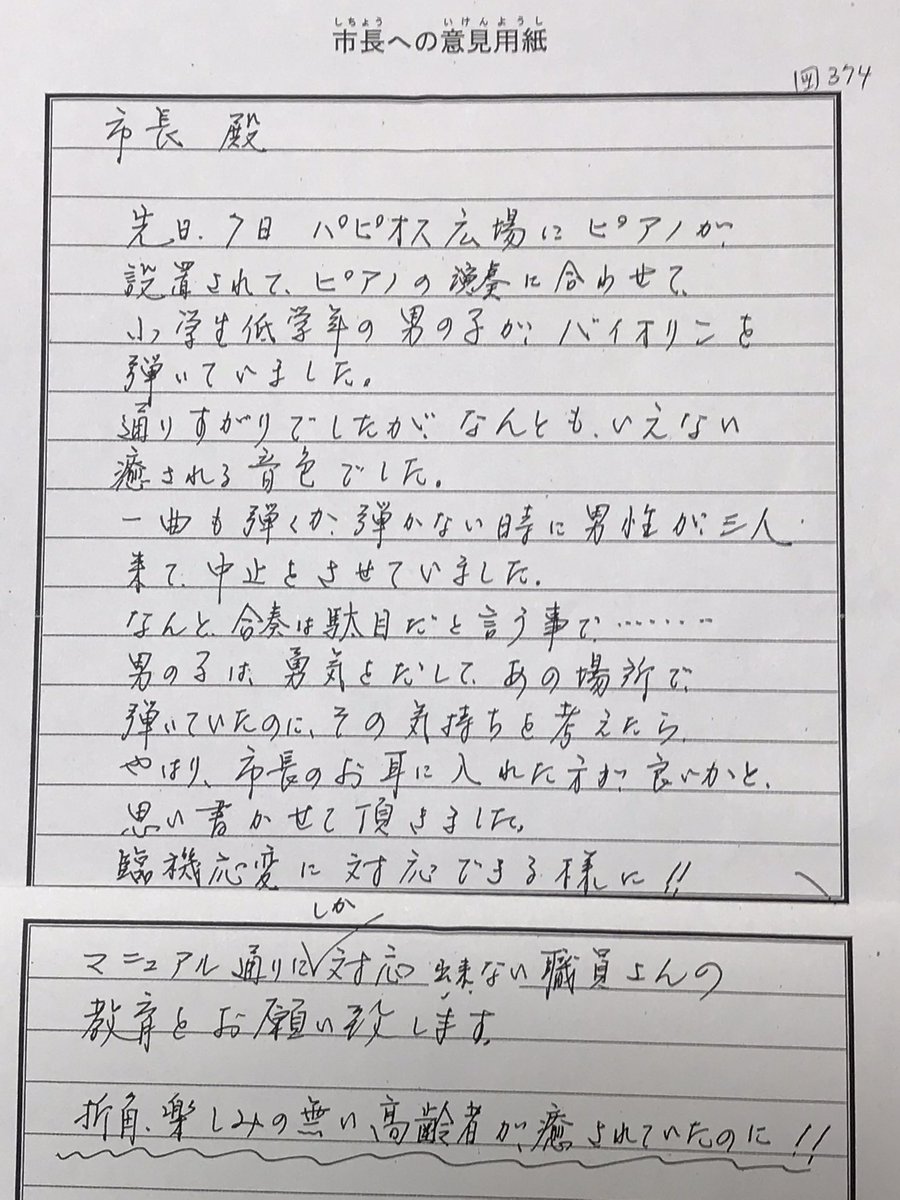 しちょう いけんようし
市長への意見用紙
374
市長 殿
先日、7日 パピオス広場にピアノが
設置されて、ピアノの演奏に合わせて、
小学生低学年の男の子が、バイオリンを
弾いていました。
通りすがりでしたが、なんとも、いえない
癒される音色でした。
一曲も弾くか、弾かない時に男性が、三人
来て、中止をさせていました。
なんと、合奏は駄目だと言う事で……
男の子は、勇気をだして、あの場所で、
弾いていたのに、その気持ちを考えたら、
やはり、市長のお耳に入れた方が、良いかと、
思い書かせて頂きました。
臨機応変に対応できる様に!!
マニュアル通りにしか対応出来ない職員さんの
教育をお願い致します。
折角、楽しみの無い高齢者が、癒されていたのに!!